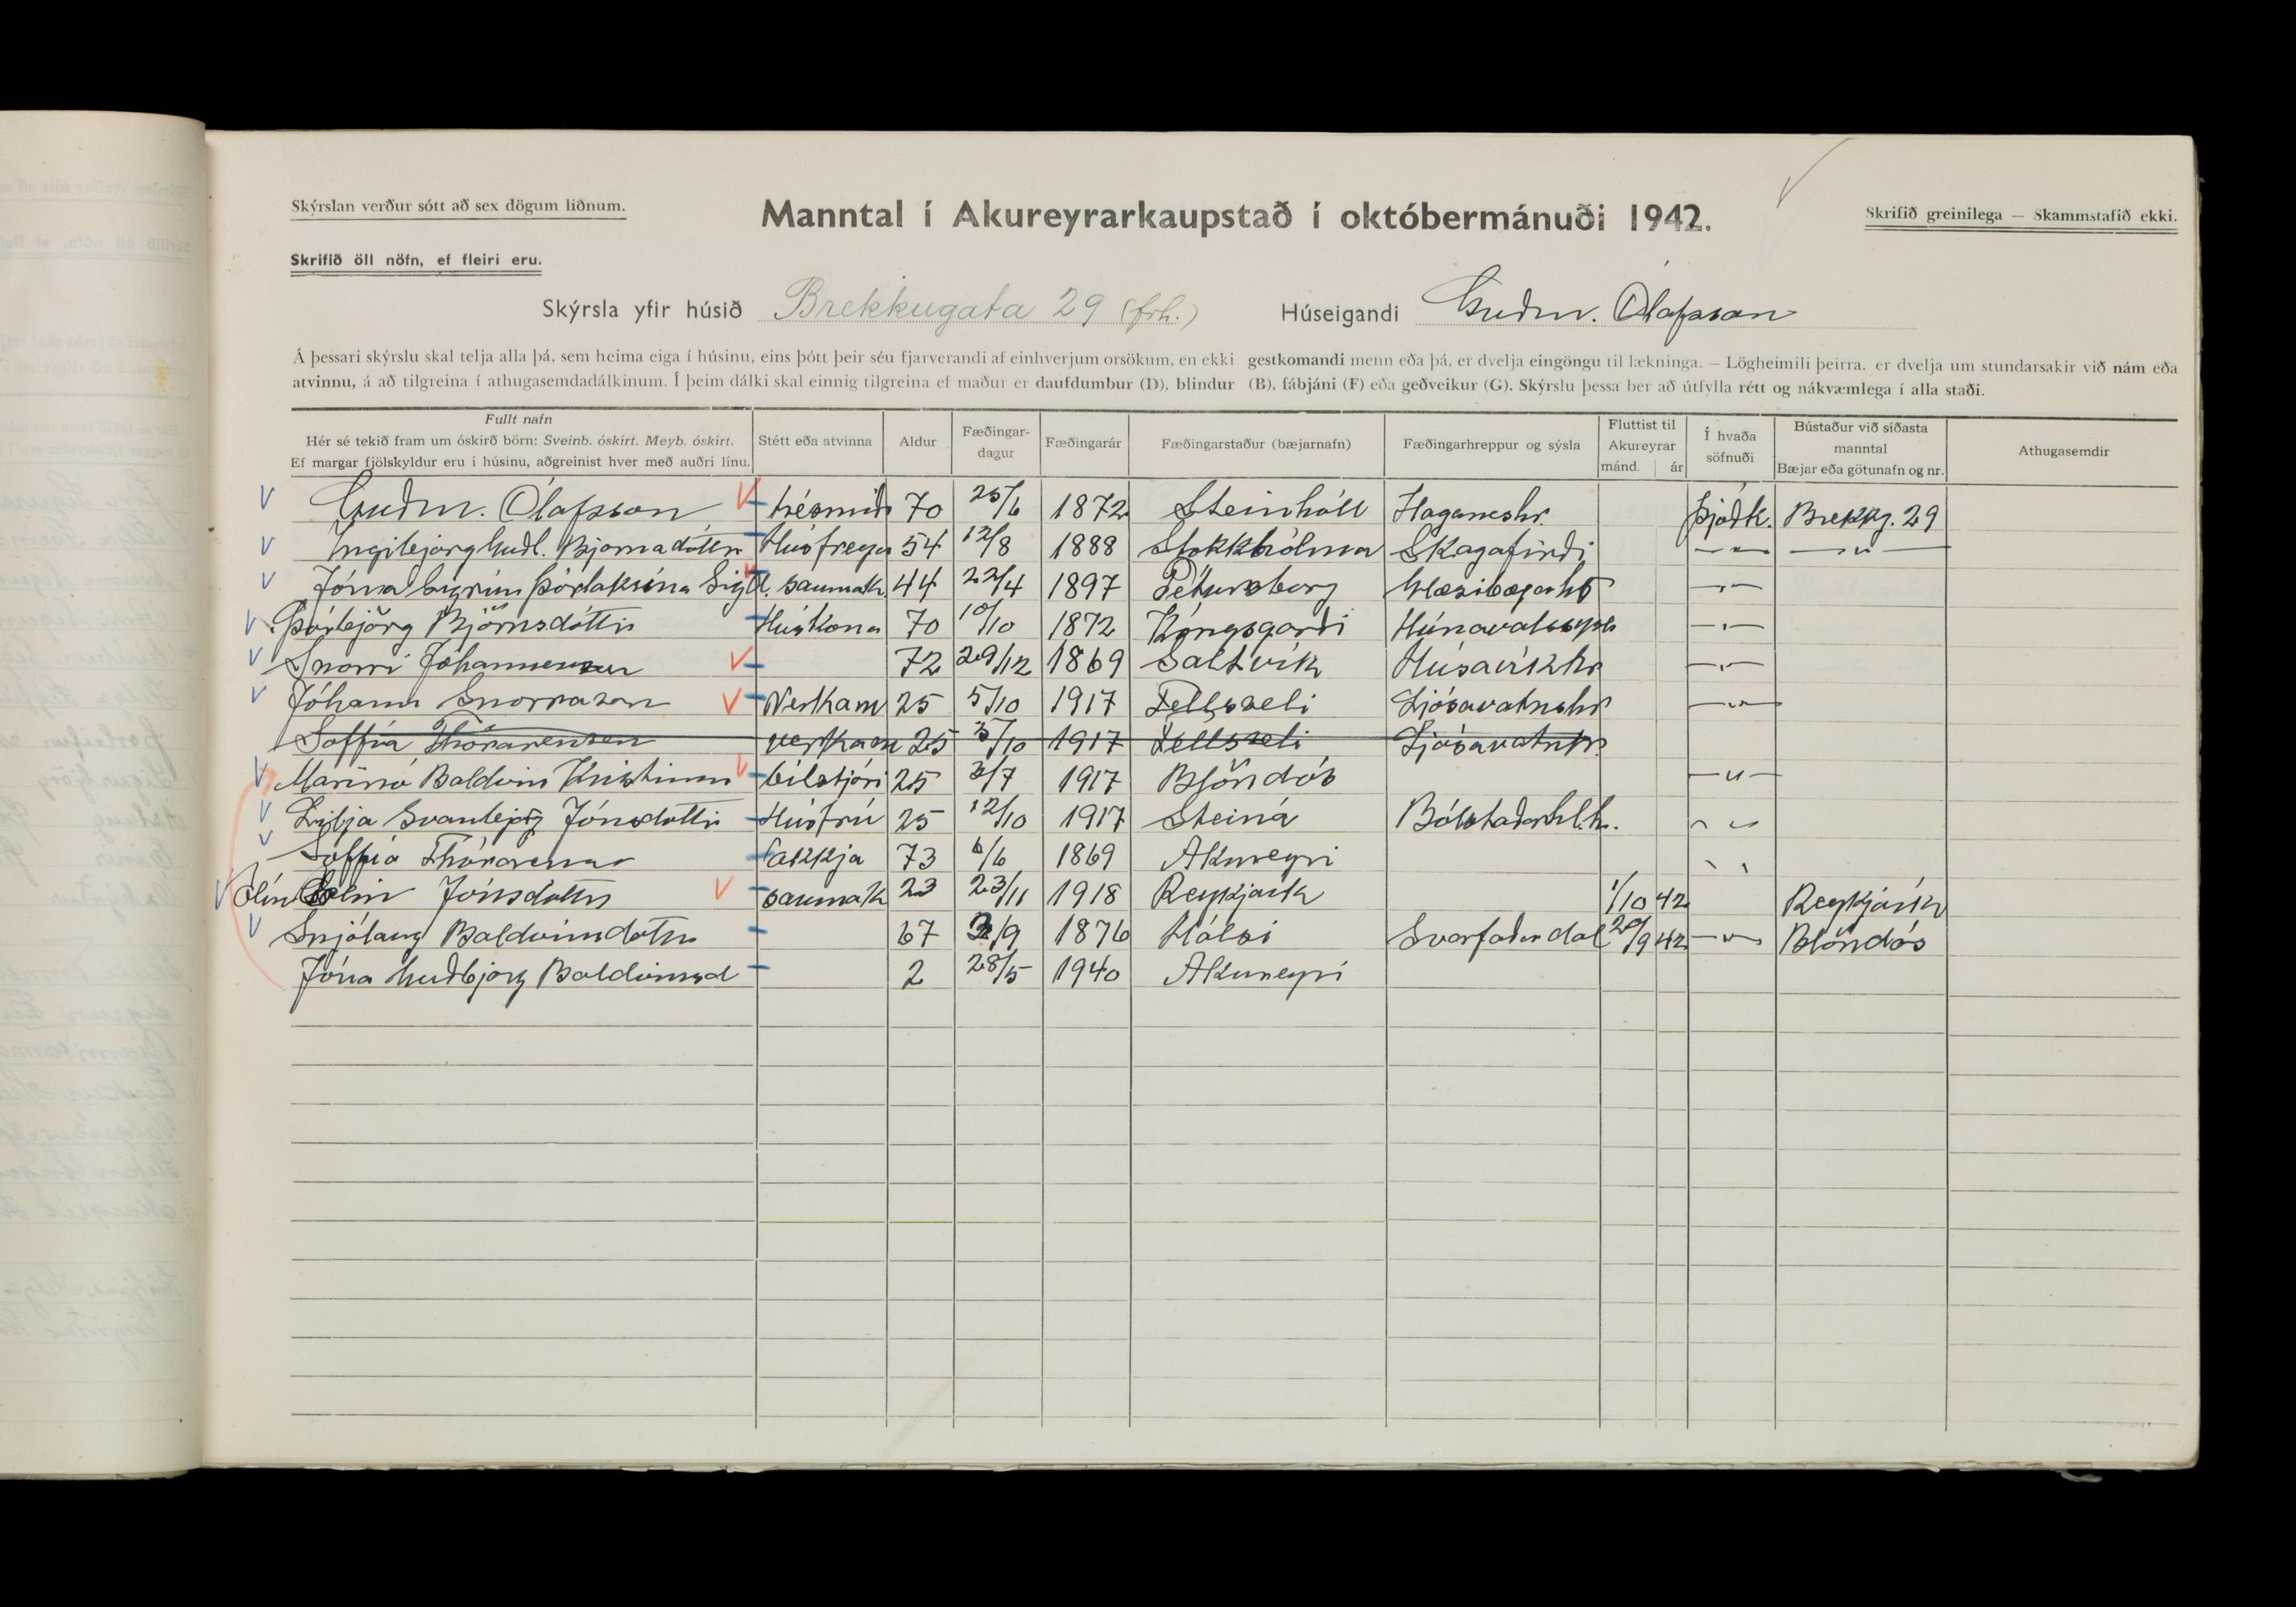 Skýrslan verður sótt að sex dögum liðnum.
Manntal í Akureyrarkaupstað í októbermánuði 1942.
Skrifið greinilega — Skammstafið ekki.
Skrifið öll nöfn, ef fleiri eru.
Skýrsla yfir húsið Brekkugata 29 (frh.) Húseigandi Guðm. Ólafsson
Á þessari skýrslu skal telja alla þá, sem heima eiga í húsinu, eins þótt þeir séu fjarverandi af einhverjum orsökum, en ekki gestkomandi menn eða þá, er dvelja eingöngu til lækninga. — Lögheimili þeirra, er dvelja um stundarsakir við nám eða
atvinnu, á að tilgreina í athugasemdadálkinum. Í þeim dálki skal einnig tilgreina ef maður er daufdumbur (D), blindur (B), fábjáni (F) eða geðveikur (G). Skýrslu þessa ber að útfylla rétt og nákvæmlega í alla staði.
Fullt nafn
Hér sé tekið fram um óskírð börn: Sveinb. óskírt. Meyb. óskírt.
Ef margar fjölskyldur eru í húsinu, aðgreinist hver með auðri línu.
Stétt eða atvinna
Aldur
Fæðingar-
dagur
Fæðingarár
Fæðingarstaður (bæjarnafn)
Fæðingarhreppur og sýsla
Fluttist til
Akureyrar
mánd. ár
Í hvaða
söfnuði
Bústaður við síðasta
manntal
Bæjar eða götunafn og nr.
Athugasemdir
Guðm. Ólafsson trésmið 70 25/6 1872 Steinhóll Haganeshr. Þjóðk. Brekkg. 29
Ingibjörg Guðl. Bjarnadóttir Húsfreyja 54 12/8 1888 Stokkhólma Skagafirði —"— —"—
Jóna Sigrún Þorláksína Sigd. saumak. 44 22/4 1897 Pétursborg Glæsibæjarhr —"—
Þórbjörg Björnsdóttir Húskona 70 10/10 1872 Kóngsgarði Húnavatssysl —"—
Snorri Jóhannesson 72 29/12 1869 Saltvík Húsavíkhr —"—
Jóhann Snorrason Verkam 25 5/10 1917 Fellsseli Ljósavatnshr —"—
Soffía Thórarensen verkam 25 5/10 1917 Fellsseli Ljósavatnhr.
Marinó Baldvin Kristinnn bílstjóri 25 3/7 1917 Blöndós —"—
Lilja Svanbjörg Jónsdóttir Húsfrú 25 12/10 1917 Steiná Bólstaðarhl.h. "
Soffía Thórarensen Eakkja 73 6/6 1869 Akureyri "
Ólín Jónsdóttir saumak 23 23/11 1918 Reykjavík 1/10 42 Reykjavík
Snjólaug Baldvinsdóttir 67 2/9 1876 Hálsi Svarfaðardal 20/9 42 —"— Blöndós
Jóna Guðbjörg Baldvinsd 2 28/5 1940 Akureyri